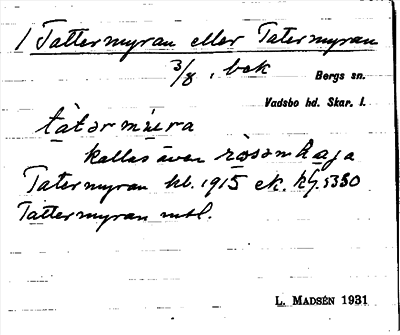 1 Tattermyran eller Tatermyran
3/8, bek Bergs sn.
Vadsbo hd. Skar. l.
tàtərmỳra
kallas även
Tatermyran kl. 1915 ek. 5350
Tattermyran mtl.
L. MADSÉN 1931